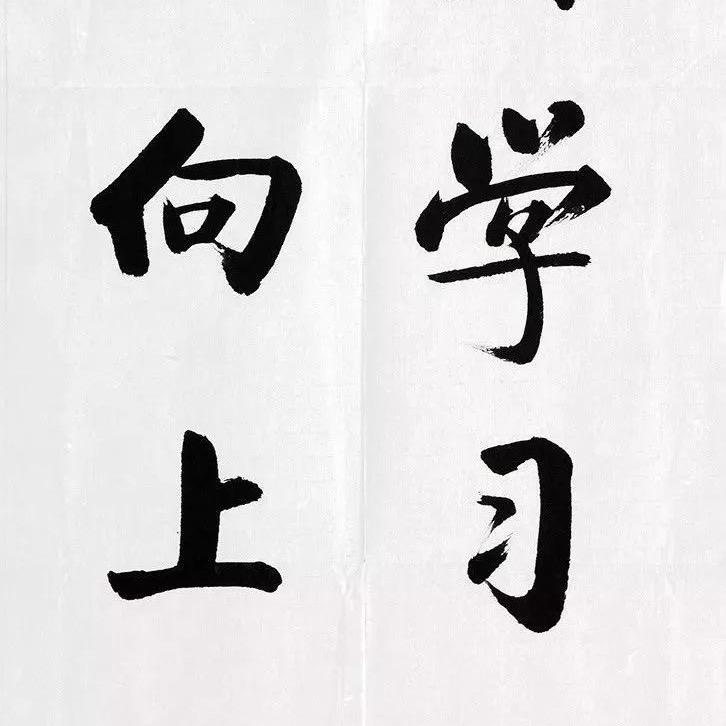 学习
向上